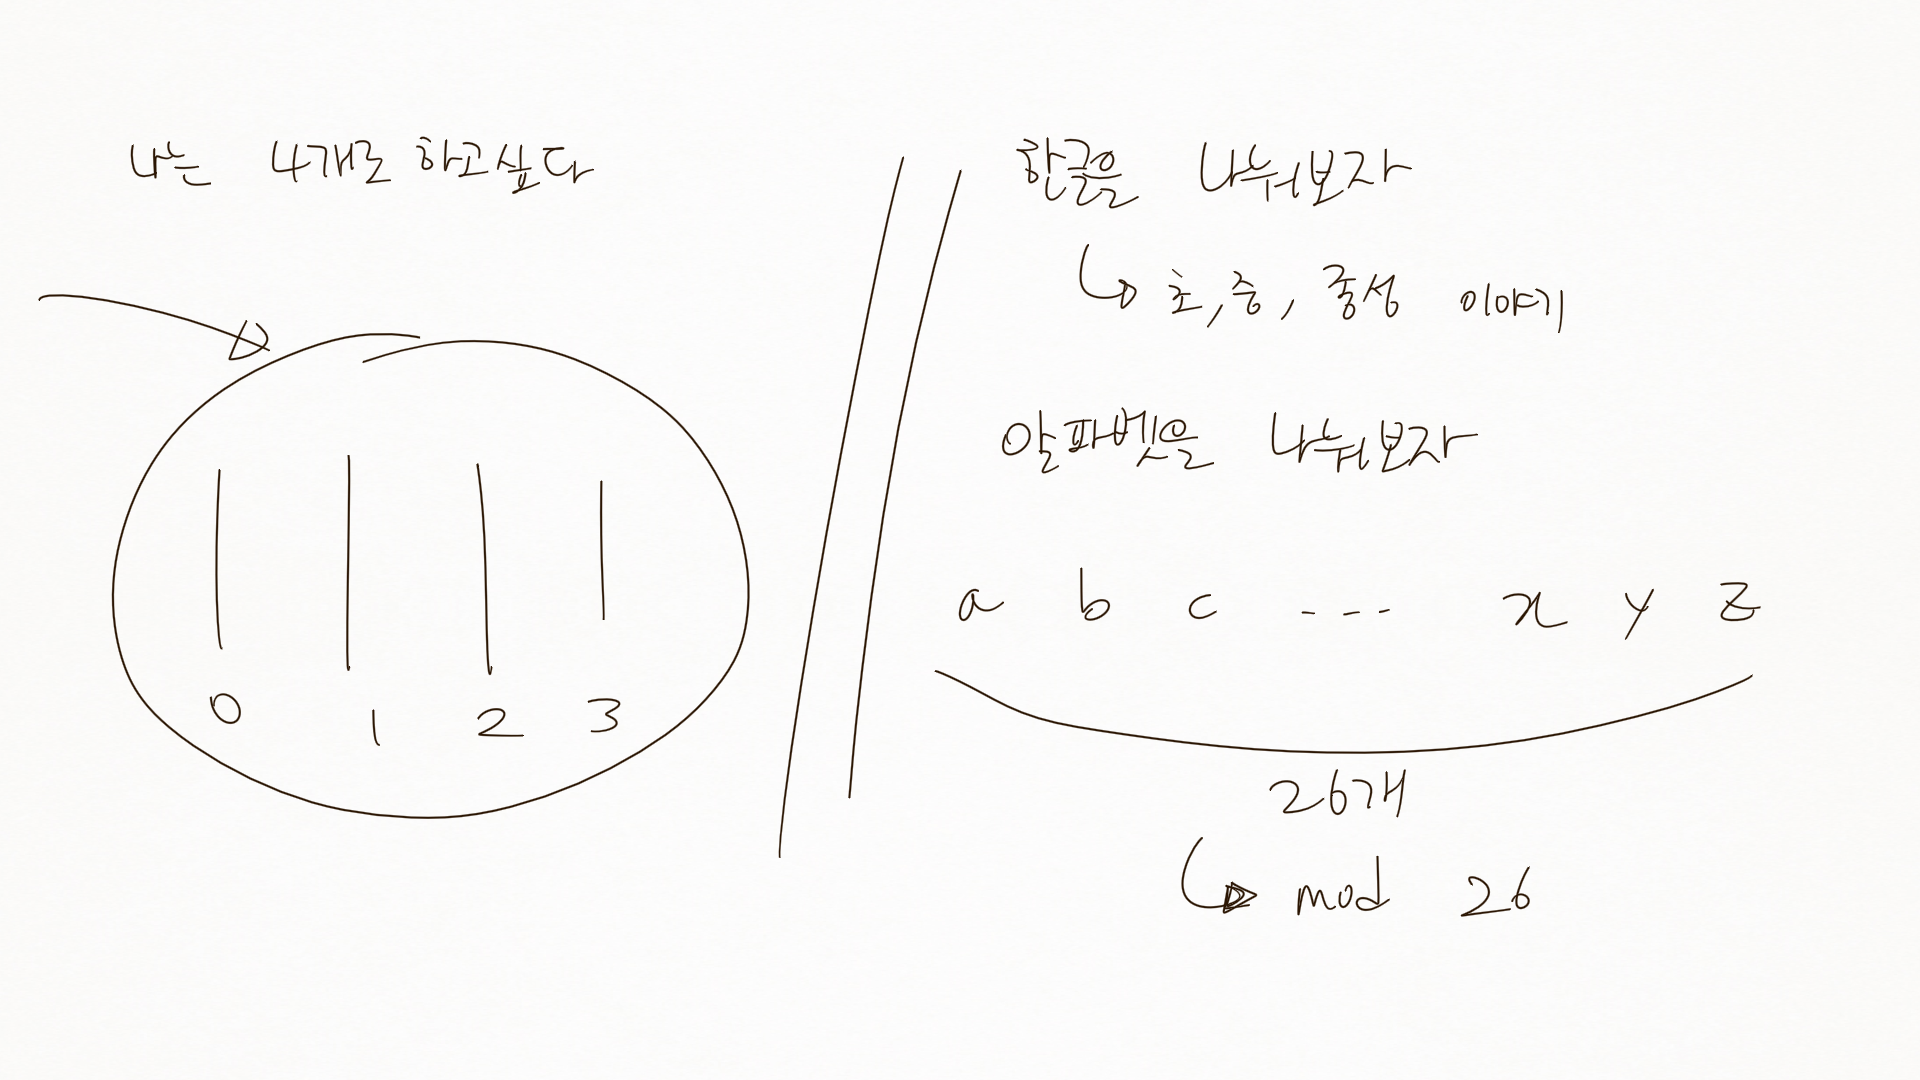 나는 4개로 하고싶다
0 1 2 3
한글을 나눠보자
초, 중, 종성 이야기
알파벳을 나눠보자
a b c --- x y z
26개
mod 26